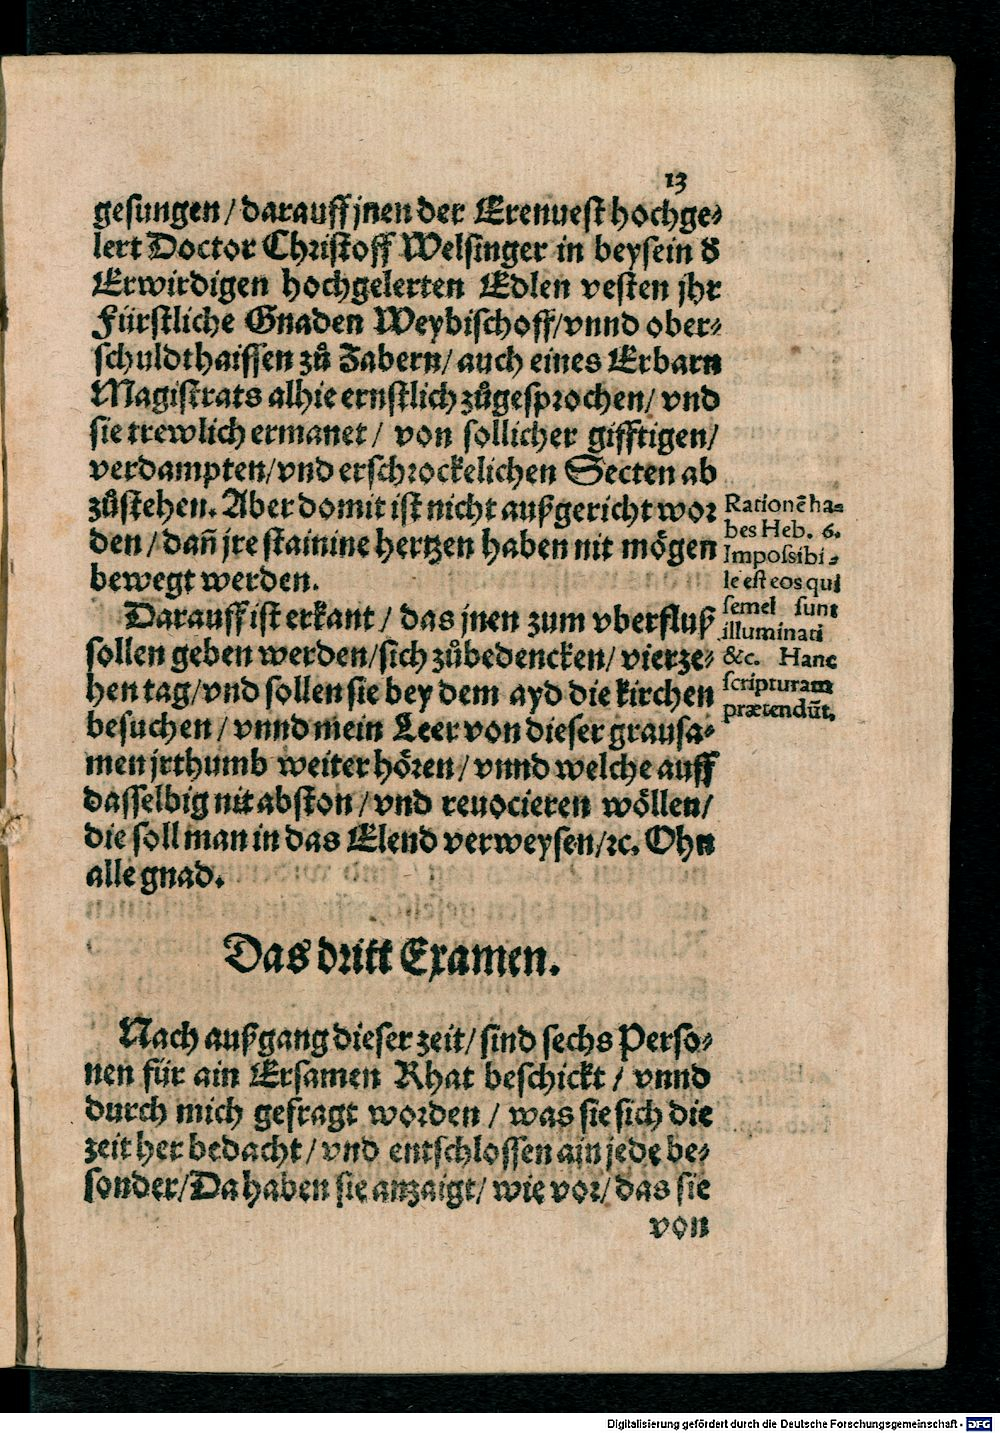 13
gesungen / darauff jnen der Erenuest hochge-
lert Doctor Christoff Welsinger in beysein d̕
Erwirdigen hochgelerten Edlen vesten jhr
Fürstliche Gnaden Weybischoff/vnnd ober-
schuldthaissen zů Zabern/ auch eines Erbarn
Magistrats alhie ernstlich zůgesprochen/ vnd
sie trewlich ermanet / von sollicher gifftigen/
verdampten/vnd erschrockelichen Secten ab
zůstehen. Aber domit ist nicht außgericht wor
den / dañ jre stainine hertzen haben nit mögen
bewegt werden.
Darauff ist erkant / das jnen zum vberfluß
sollen geben werden/sich zůbedencken/ vierze-
hen tag/vnd sollen sie bey dem ayd die kirchen
besuchen / vnnd mein Leer von dieser grausa-
men jrthumb weiter hören / vnnd welche auff
dasselbig nit abston / vnd reuocieren wöllen/
die soll man in das Elend verweysen/ꝛc. Ohn
alle gnad.
Rationē ha-
bes Heb. 6.
Impossibi-
le est eos qui
semel sunt
illuminati
&c. Hanc
scripturam
prætendūt.
Das dritt Examen.
Nach außgang dieser zeit/ sind sechs Perso-
nen für ain Ersamen Rhat beschickt / vnnd
durch mich gefragt worden / was sie sich die
zeit her bedacht / vnd entschlossen ain jede be-
sonder/Da haben sie anzaigt/ wie vor/ das sie
von
Digitalisierung gefördert durch die Deutsche Forschungsgemeinschaft - DFG